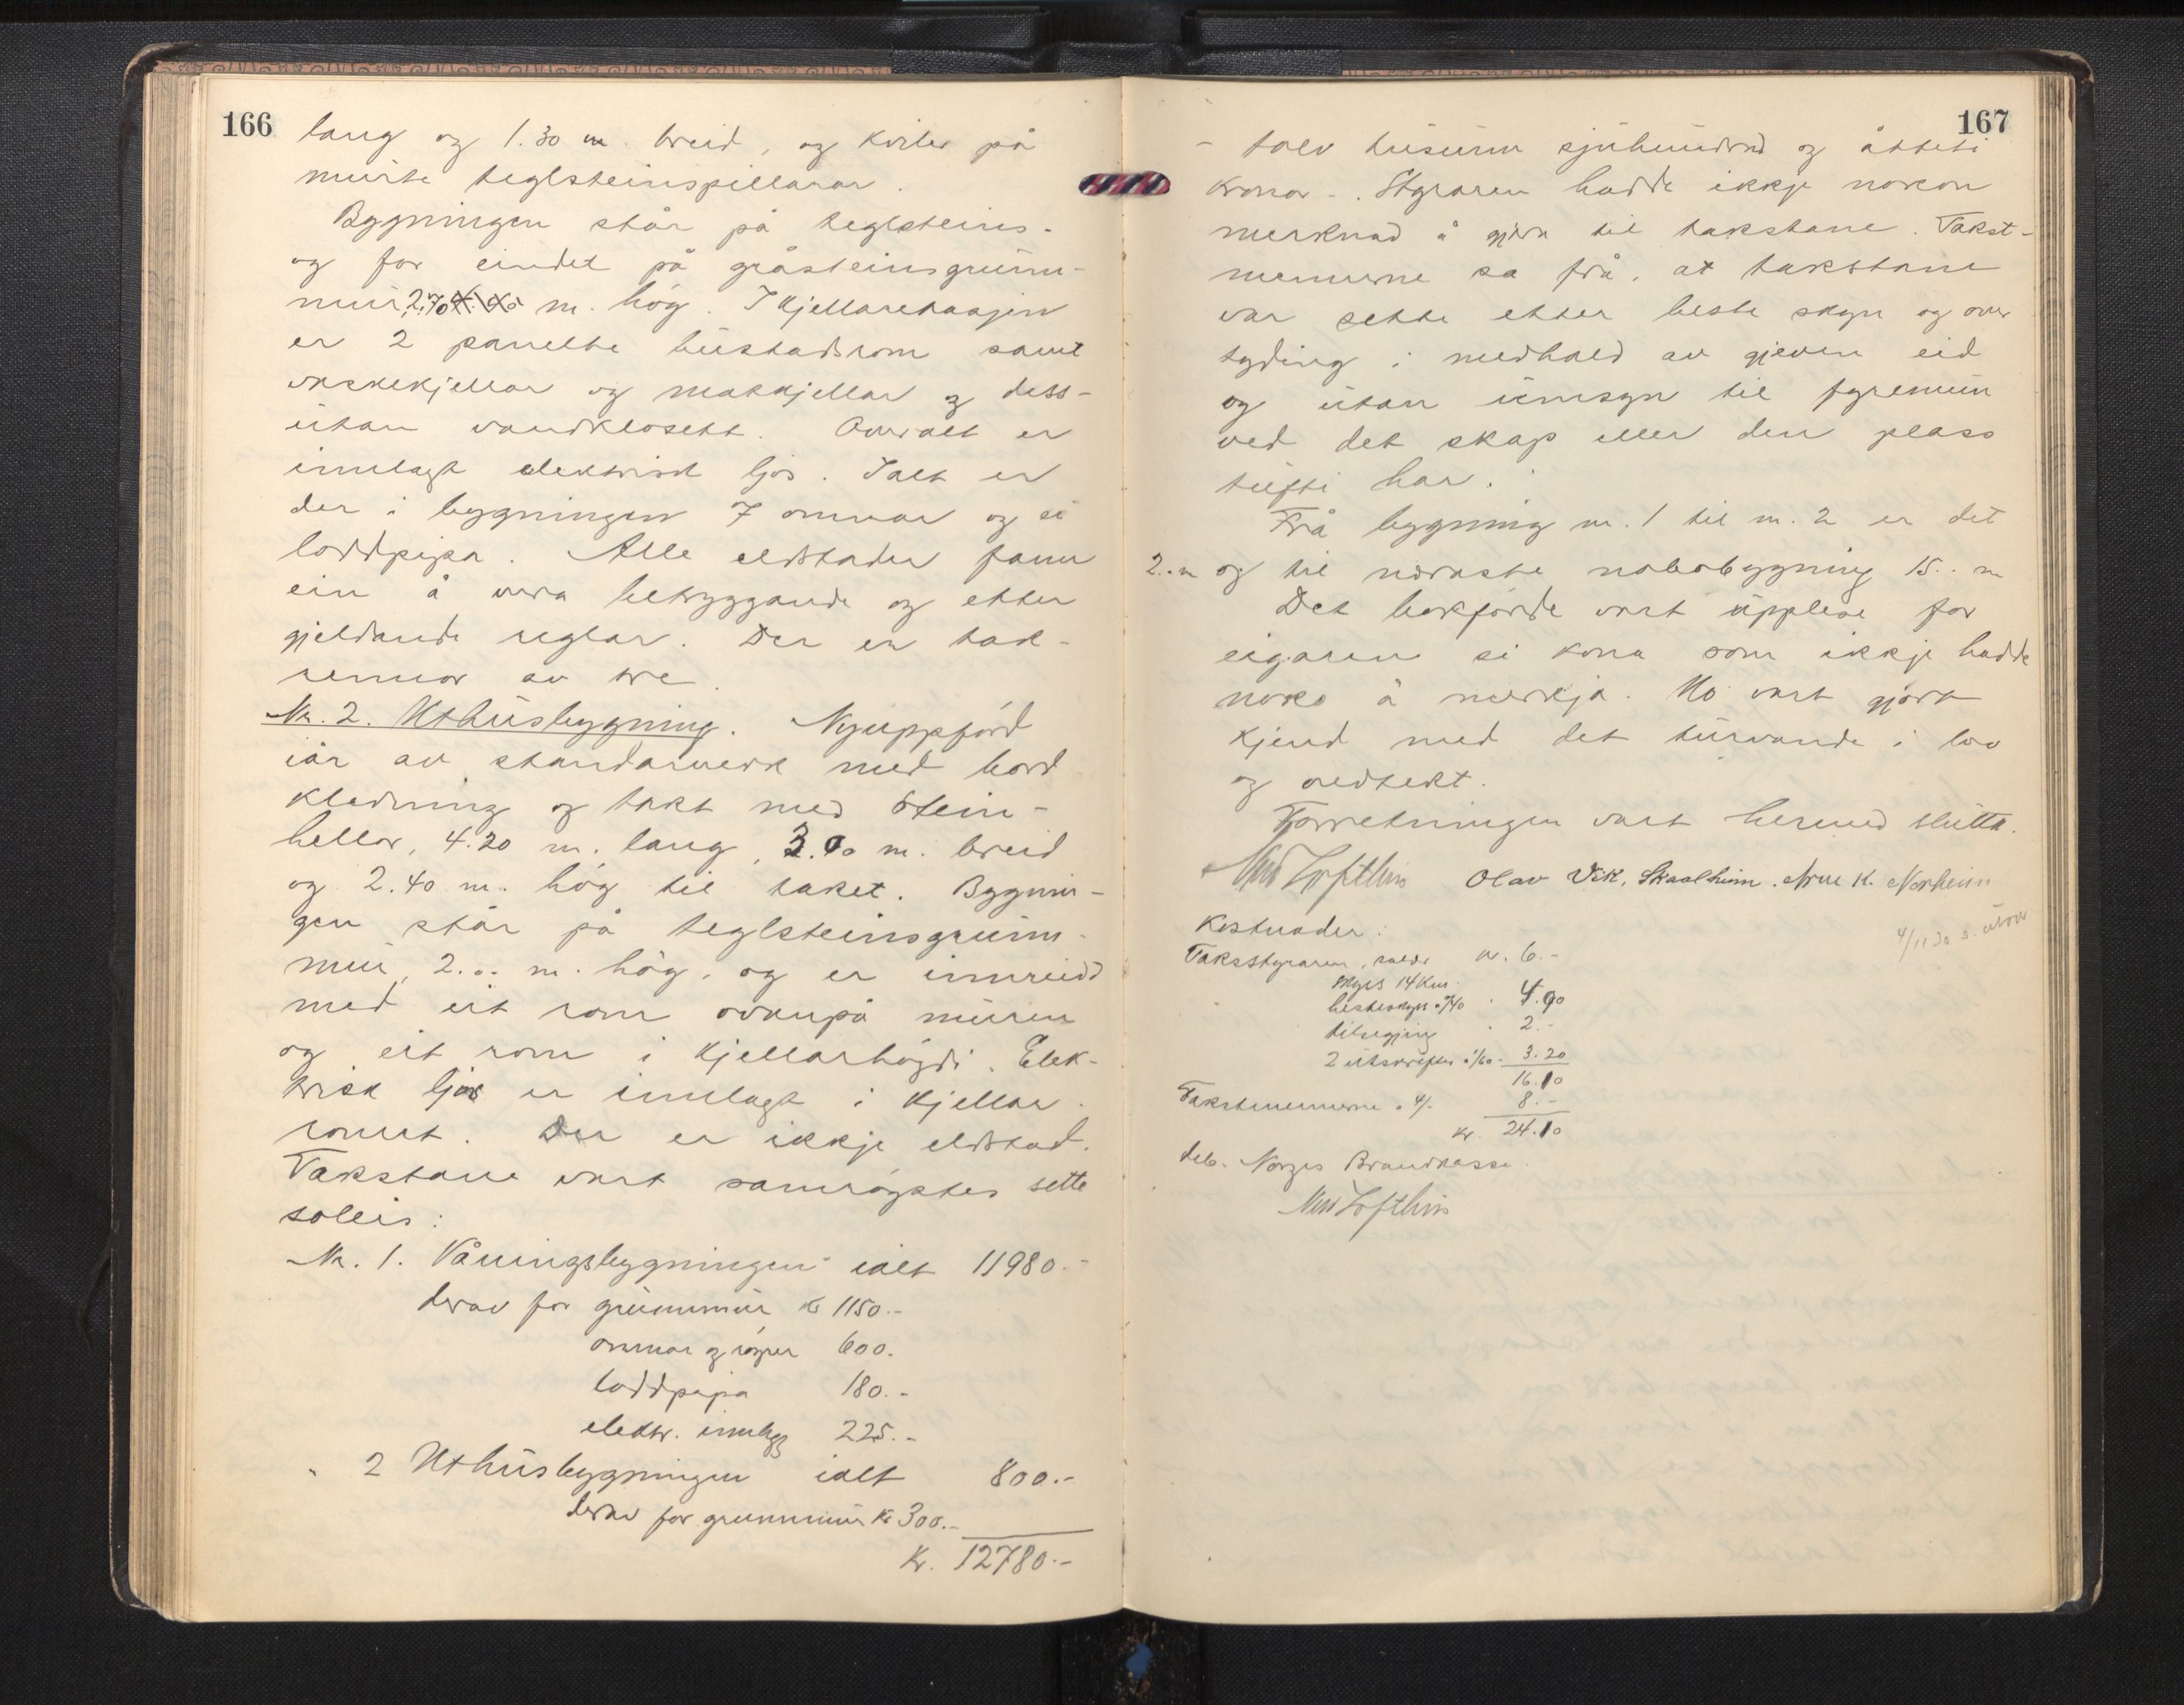 166
lang og 1.30 m. breid, og kviler på
murte teglsteinspillarar.
Bygningen står på teglsteins-
og for eindel på gråsteinsgrunn-
mur, 2.70 m. høg. I kjellaretaasjen
er 2 panelte bustadrom samt
vaskekjellar og matkjellar og dess-
utan vandklosett. Overalt er
innlagt elektrisk ljos. Ialt er
der i bygningen 7 omnar og ei
loddpipa. Alle eldstader fann
ein å vera betryggande og etter
gjeldande reglar. Der er tak-
rennor av tre.
Nr. 2. Uthusbygning. Nyuppförd
iår av standarverk med bord
kledning og takt med Stein-
hellor, 4.20 m. lang, 3.00 m. breid
og 2.40 m. høg til taket. Bygnin-
gen står på teglsteinsgrunn-
mur, 2.00 m. høg, og er innreidd
med eit rom ovanpå muren
og eit rom i kjellarhøgdi. Elek-
trisk ljos er innlagt i kjellar-
romet. Der er ikkje eldstad.
Takstane vart samrøystes sette
soleis:
Nr. 1. Våningsbygningen ialt 11980.-
derav for grunnmur kr 1150.-
omnar og røyrer 600.-
loddpipa 180.-
elektr. innlegg 225.-
" 2 Uthusbygningen ialt 800.-
derav for grunnmur kr 300.-
Kr. 12780.-
167
- tolv tusund sjuhundrad og åtteti
kronor -. Styraren hadde ikkje nokon
merknad å gjera til takstane. Takst-
mennerne sa frå, at takstane
var sette etter beste skyn og over
tyding i medhald av gjeven eid
og utan umsyn til fyremun
ved det skap eller den plass
tufti har.
Frå bygning nr. 1 til nr. 2 er det
2.. m og til næraste nabobygning 15.. m
Det bokførde vart upplese for
eigaren si kona som ikkje hadde
noko å merkja. Ho vart gjort
kjend med det turvande i lov
og vedtekt.
Forretningen vart hermed slutta.
Olav Vik, Skaalheim. Arne K. Norheim
4/11 30 s. utskr
Kostnader:
Takststyraren, salær kr. 6.-
skyss 14 Km.
hesteskyss " 4.90
tilsegjing " 2.-
2 utskrifter à 1/60 - 3.20
16.10
Takstmennerne à 4/- 8.-
kr. 24.10
deb. Norges Brandkasse.